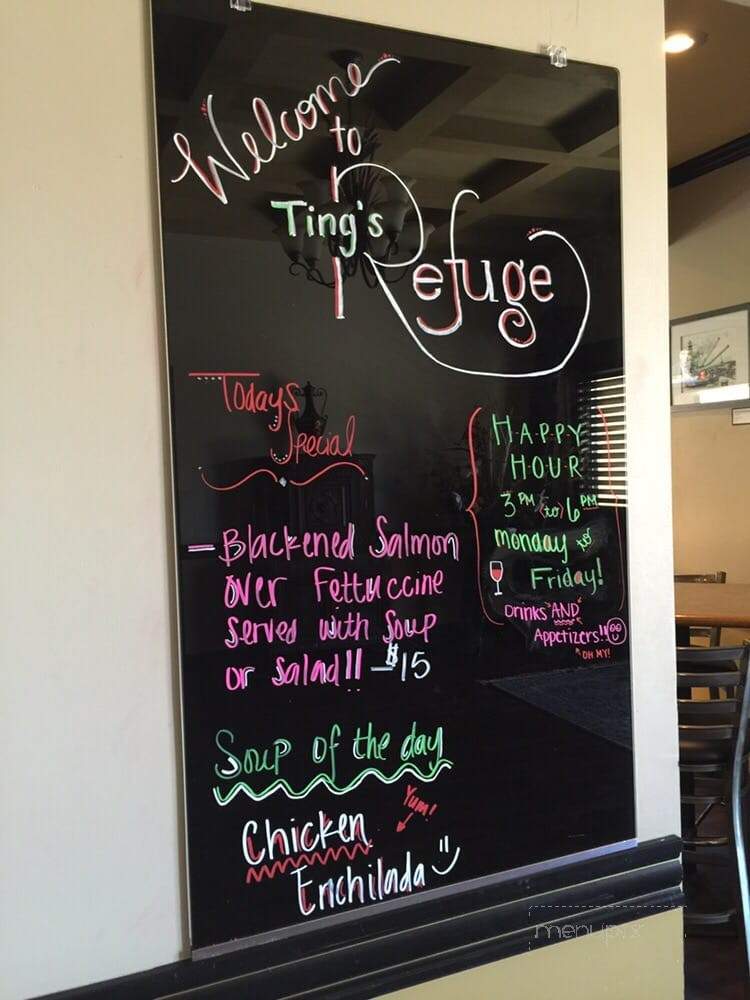 Welcome
to
Ting's
Refuge
Todays
Special
- Blackened Salmon
over Fettuccine
served with soup
or salad!! - $15
HAPPY
HOUR
3PM (to) 6PM
monday to
Friday!
Drinks AND
Appetizers!!
OH MY!
Soup of the day
Yum!
Chicken
Enchilada
menupix